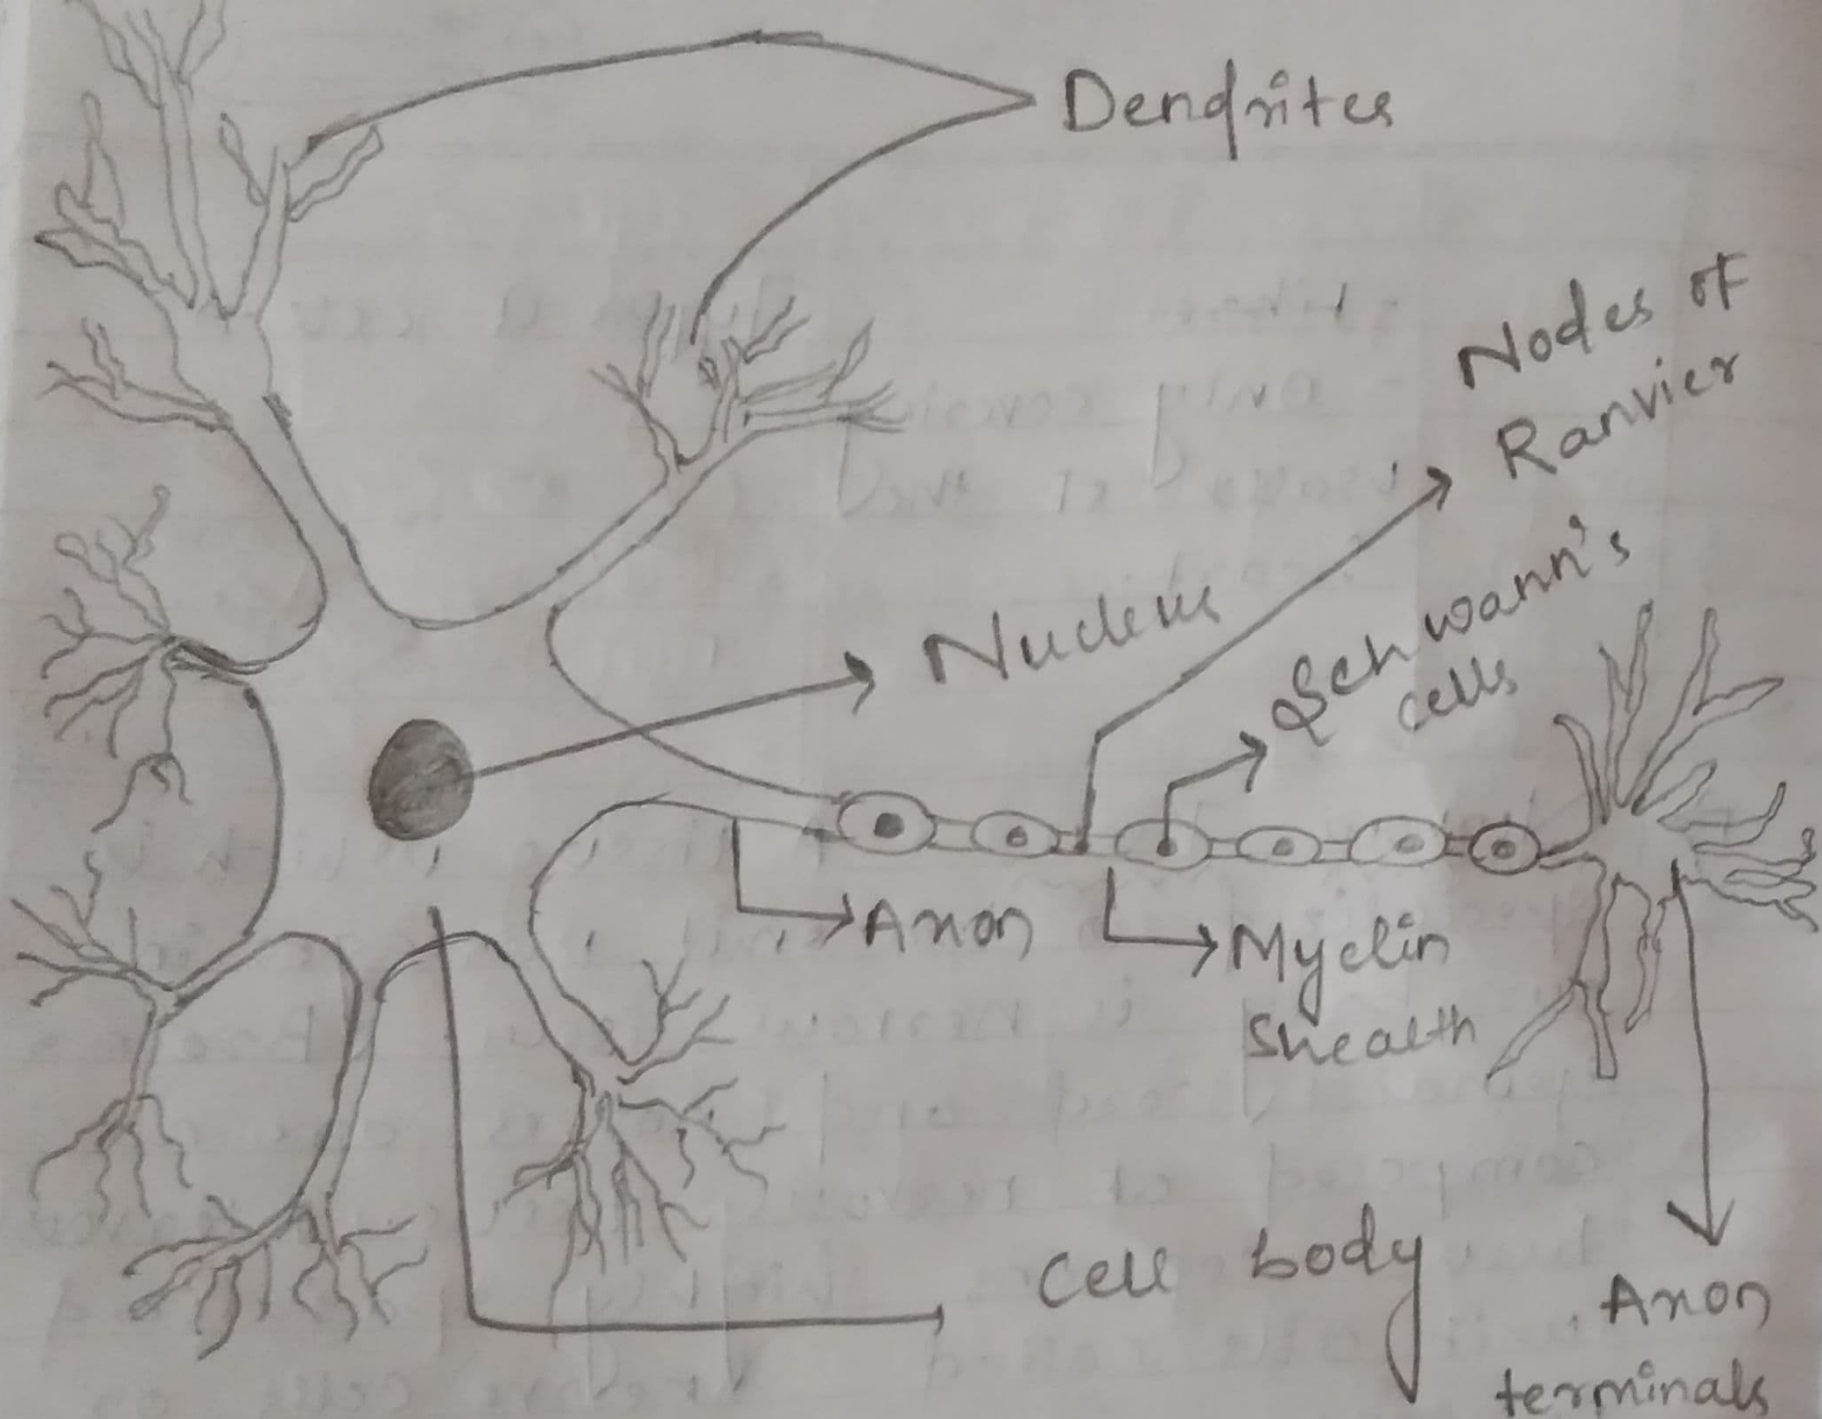 Dendrites
Nodes of
Ranvier
Nucleus
Schwann's
cells
Axon
Myelin
Shealth
Cell body
Axon
terminals